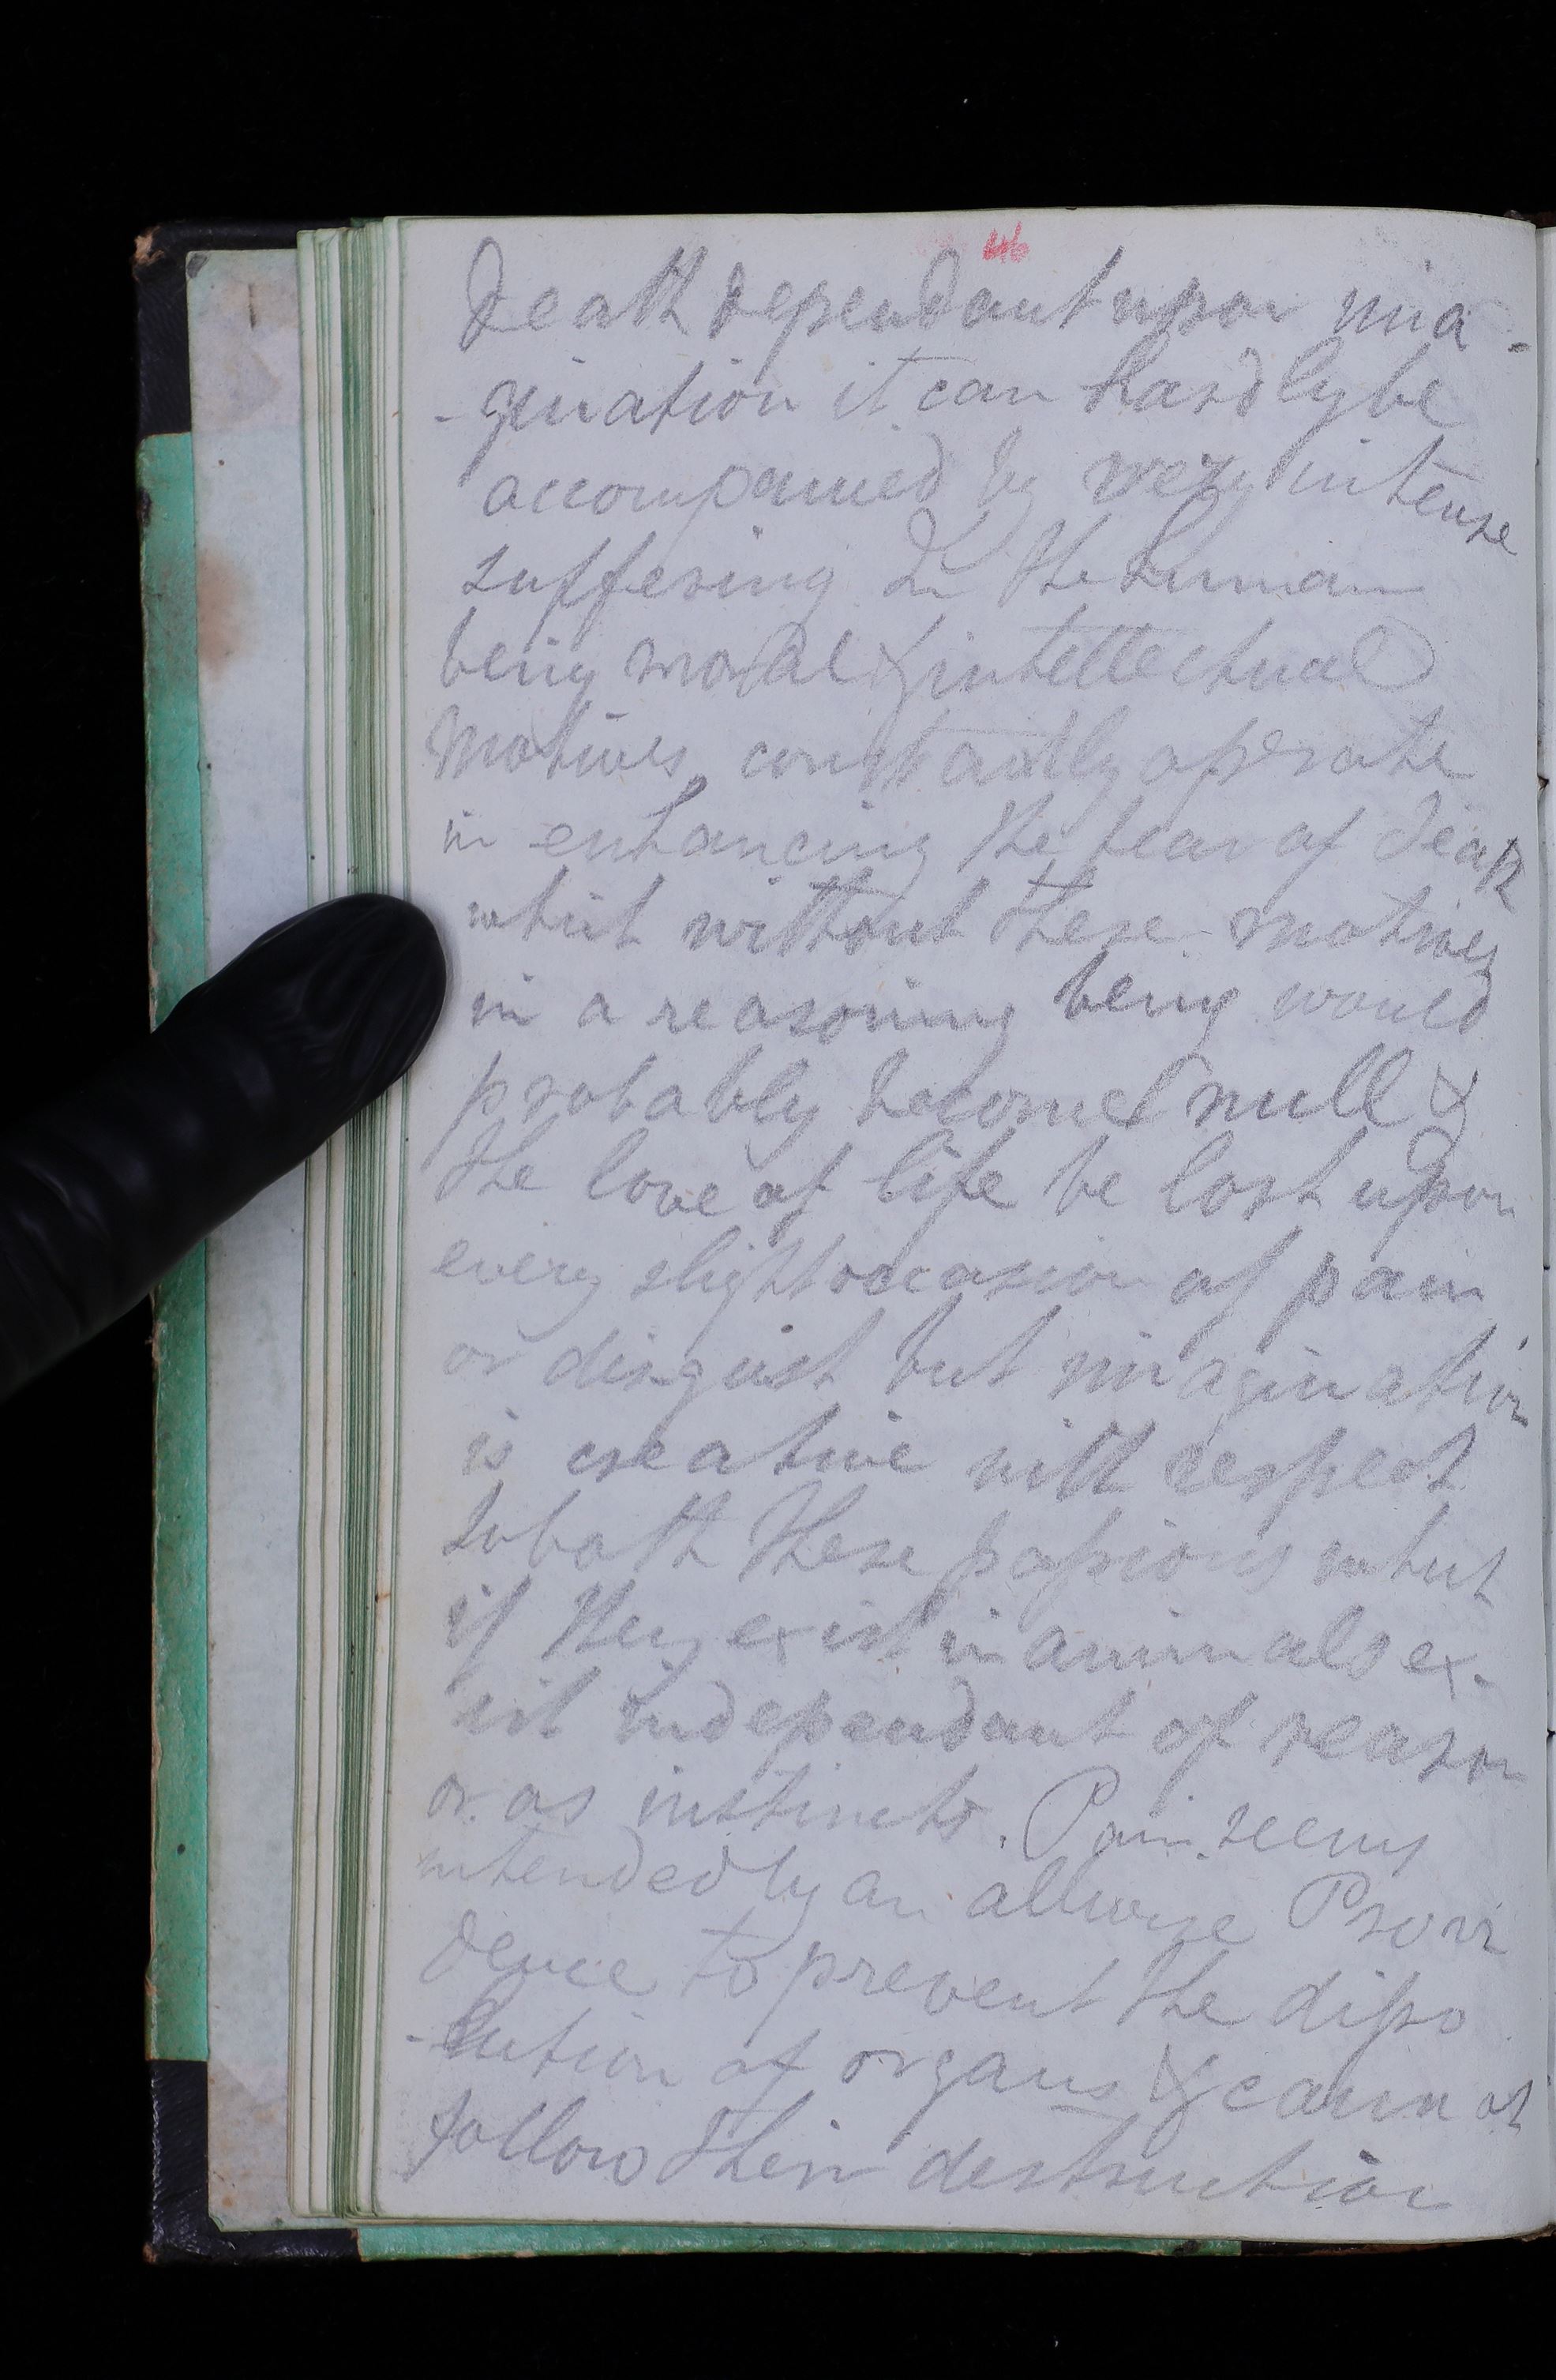 46
death dependant upon ima-
-gination it can hardly be
accompanied by very intense
suffering In the human
being moral & intellectual
motives constantly operate
in enhancing the fear of death
which without these motives
in a reasoning being would
probably become null &
the love of life be lost upon
every slight occasion of pain
or disgust but imagination
is creative with respect
to both these passions which
if they exist in animals ex-
ist independant of reason
or as instincts. Pain seems
intended by an allwise Provi
dence to prevent the disso
-lution of organs & cannot
follow their destruction